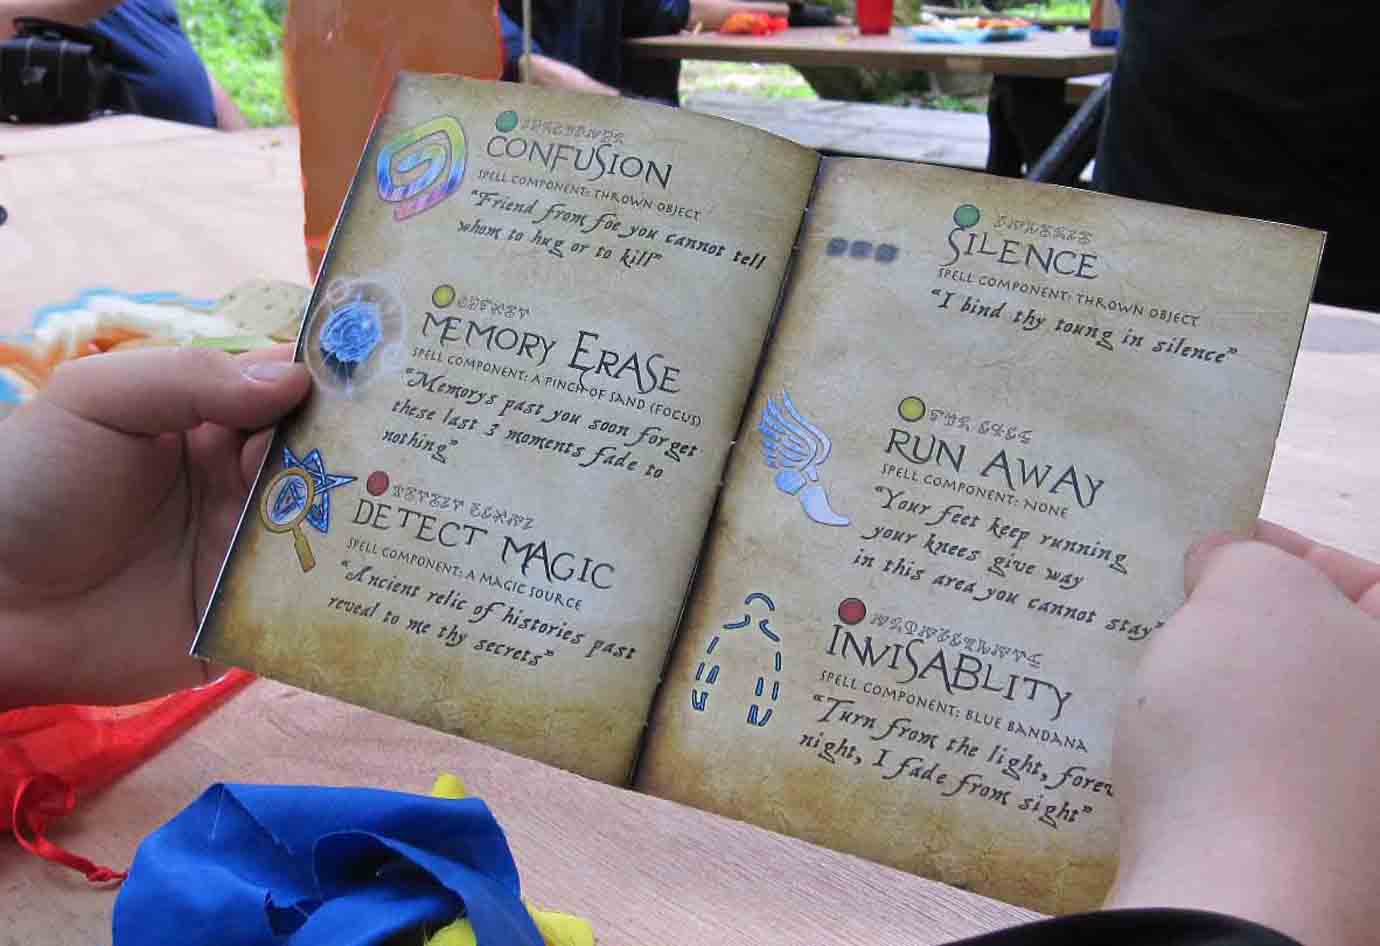 CONFUSION
SPELL COMPONENT: THROWN OBJECT
"Friend from foe you cannot tell
whom to hug or to kill"
MEMORY ERASE
SPELL COMPONENT: A PINCH OF SAND (FOCUS)
"Memorys past you soon forget
these last 3 moments fade to
nothing"
DETECT MAGIC
SPELL COMPONENT: A MAGIC SOURCE
"Ancient relic of histories past
reveal to me thy secrets"
SILENCE
SPELL COMPONENT: THROWN OBJECT
"I bind thy toung in silence"
RUN AWAY
SPELL COMPONENT: NONE
"Your feet keep running
your knees give way
in this area you cannot stay"
INVISABLITY
SPELL COMPONENT: BLUE BANDANA
"Turn from the light,
night, I fade from sight"